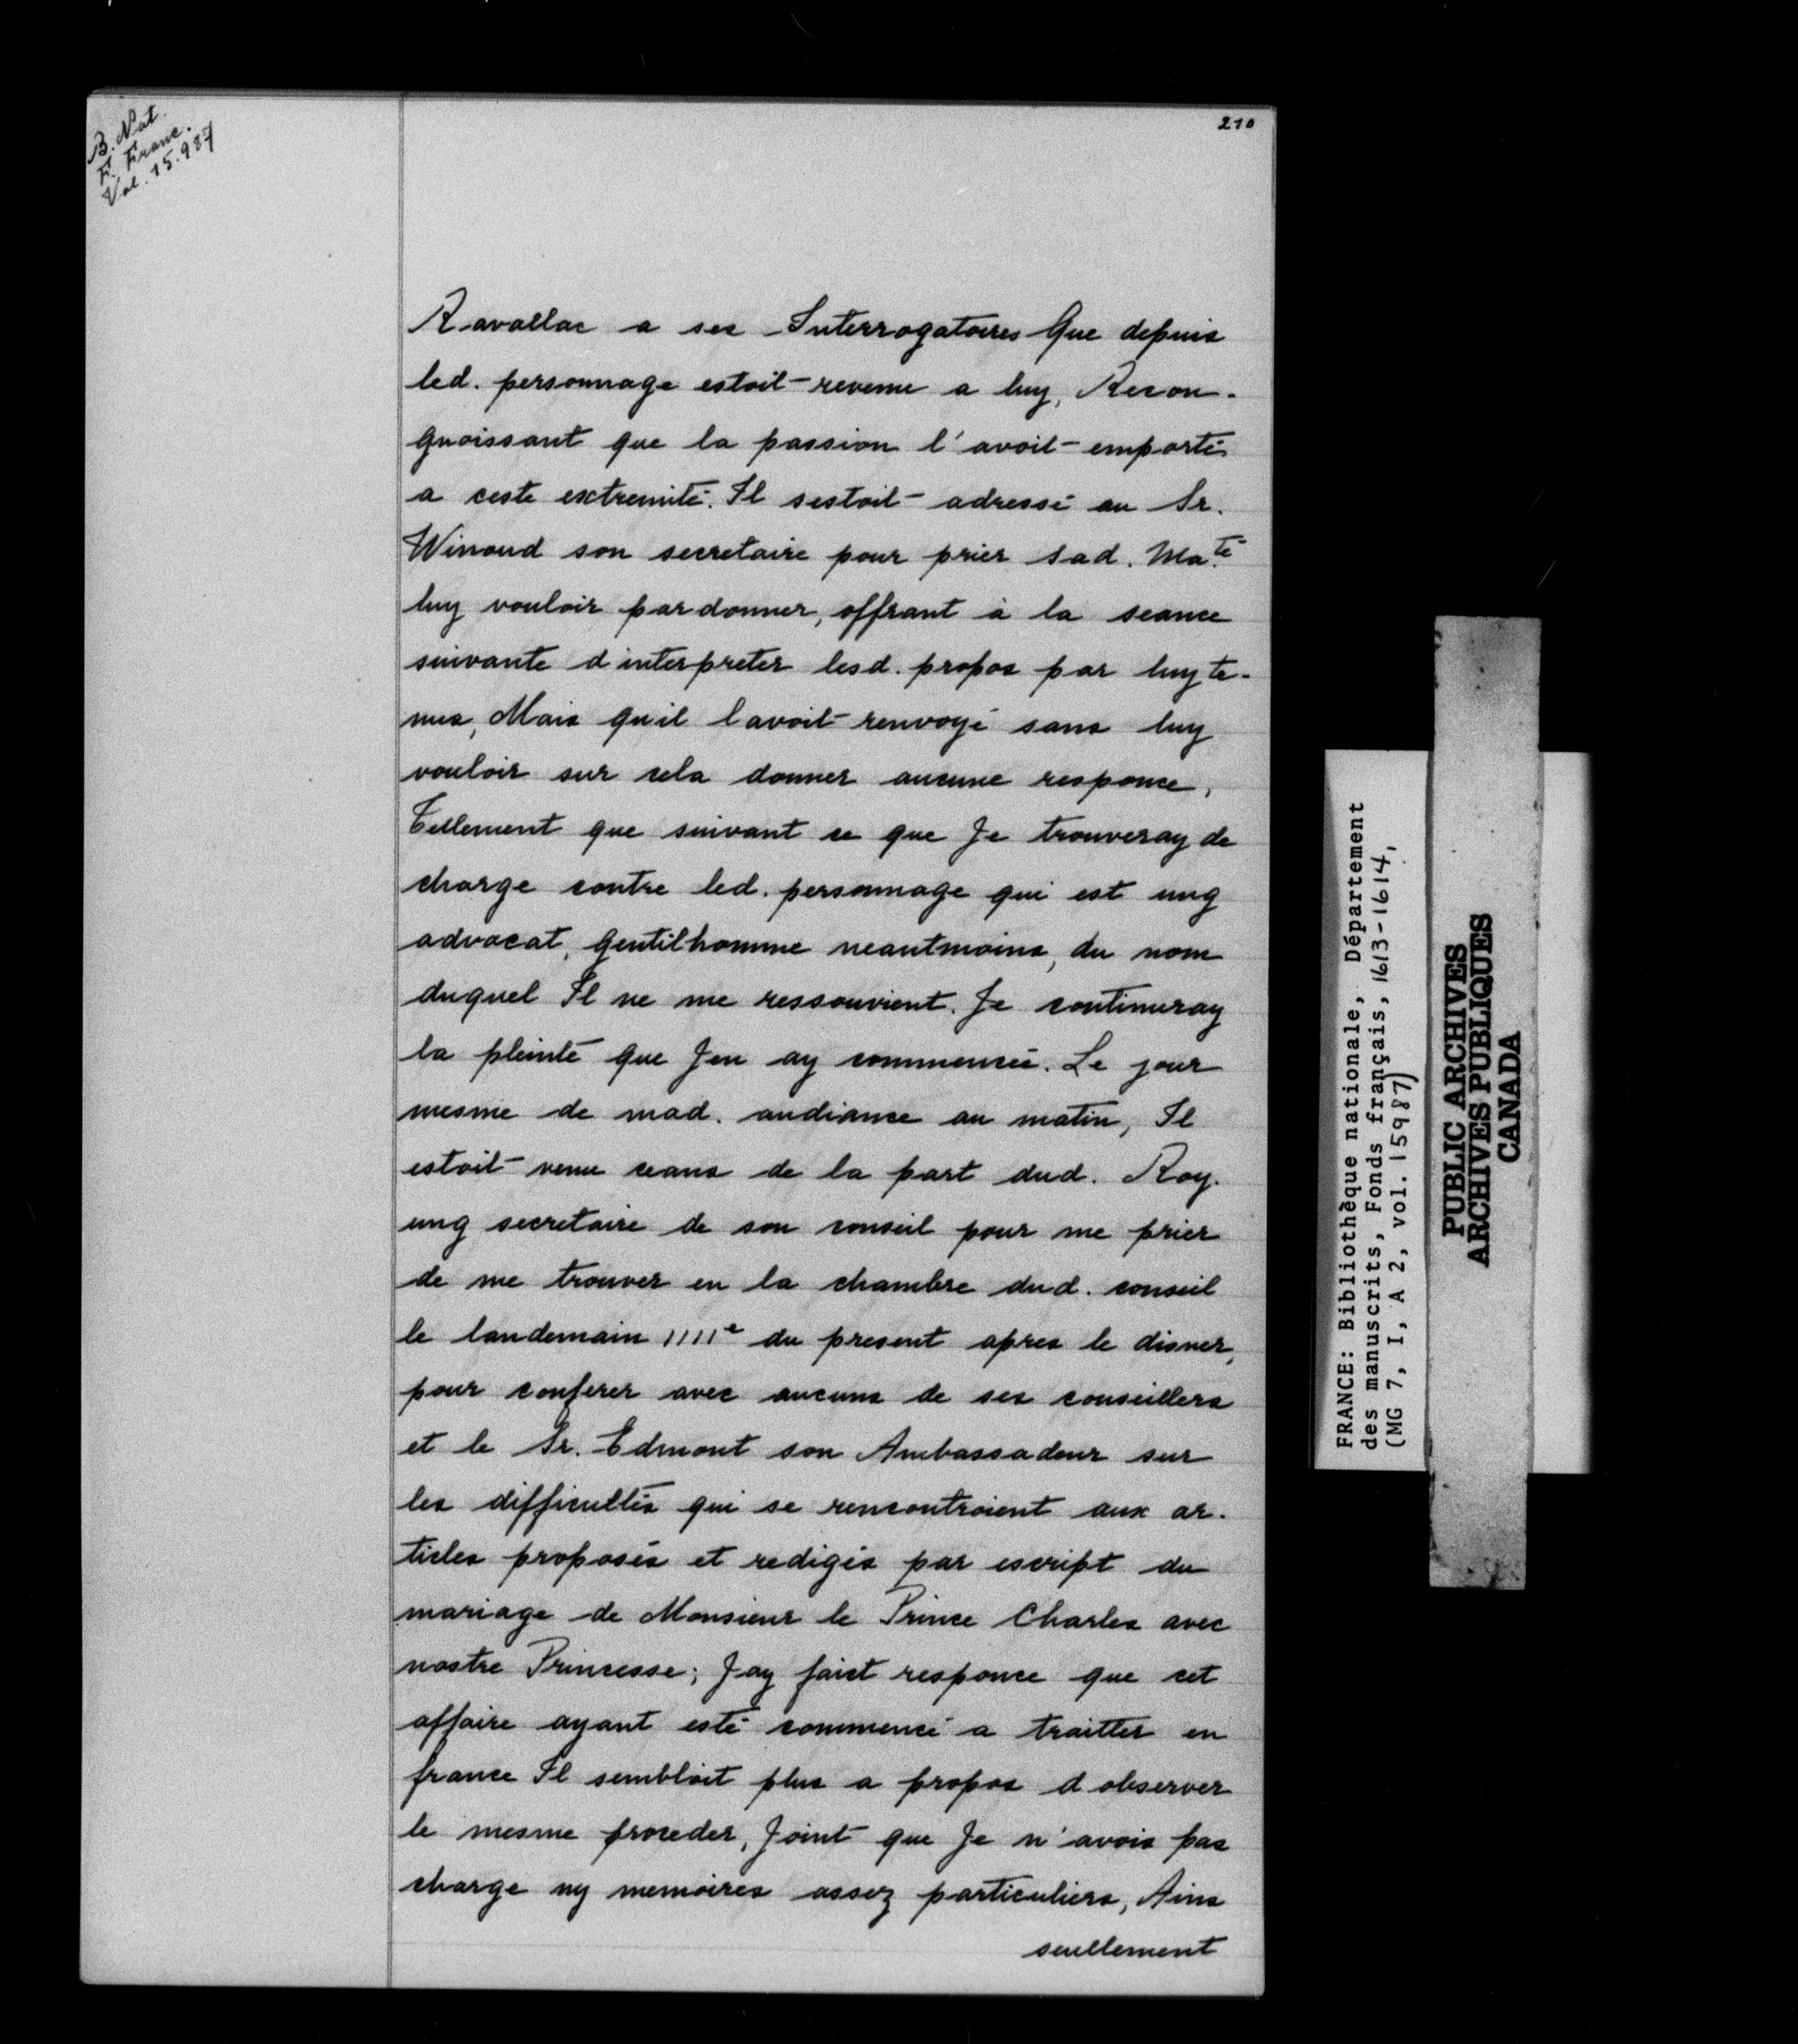 B. Nat.
F. Franc.
Vol. 15.987
210
Ravallac a ses Interrogatoires Que depuis
led. personnage estoit revenu a luy, Recon-
gnoissant que la passion l'avoit emporté
a ceste extremité. Il sestoit adressé au Sr.
Winoud son secretaire pour prier sad. Ma.té
luy vouloir pardonner, offrant à la seance
suivante d interpreter lesd. propos par luy te-
nus, Mais quil lavoit renvoyé sans luy
vouloir sur cela donner aucune responce,
Tellement que suivant ce que Je trouveray de
charge contre led. personnage qui est ung
advocat, gentilhomme neantmoins, du nom
duquel Il ne me ressouvient. Je continuray
la pleinte que Jen ay commencée. Le jour
mesme de mad. audiance au matin, Il
estoit venu ceans de la part dud. Roy.
ung secretaire de son conseil pour me prier
de me trouver en la chambre dud. conseil
le landemain IIIIe du present apres le disner,
pour conferer avec aucuns de ses conseillers
et le Sr. Edmont son Ambassadeur sur
les difficultés qui se rencontroient aux ar-
ticles proposés et redigés par escript du
mariage de Monsieur le Prince Charles avec
nostre Princesse; Jay faict responce que cet
affaire ayant esté commencé a traitter en
france Il sembloit plus a propos d observer
le mesme proceder, Joint que Je n'avois pas
charge ny memoires assez particuliers, Ains
seullement
FRANCE: Bibliothèque nationale, Département
des manuscrits, Fonds français, 1613-1614,
(MG 7, I, A 2, vol. 15987)
PUBLIC ARCHIVES
ARCHIVES PUBLIQUES
CANADA